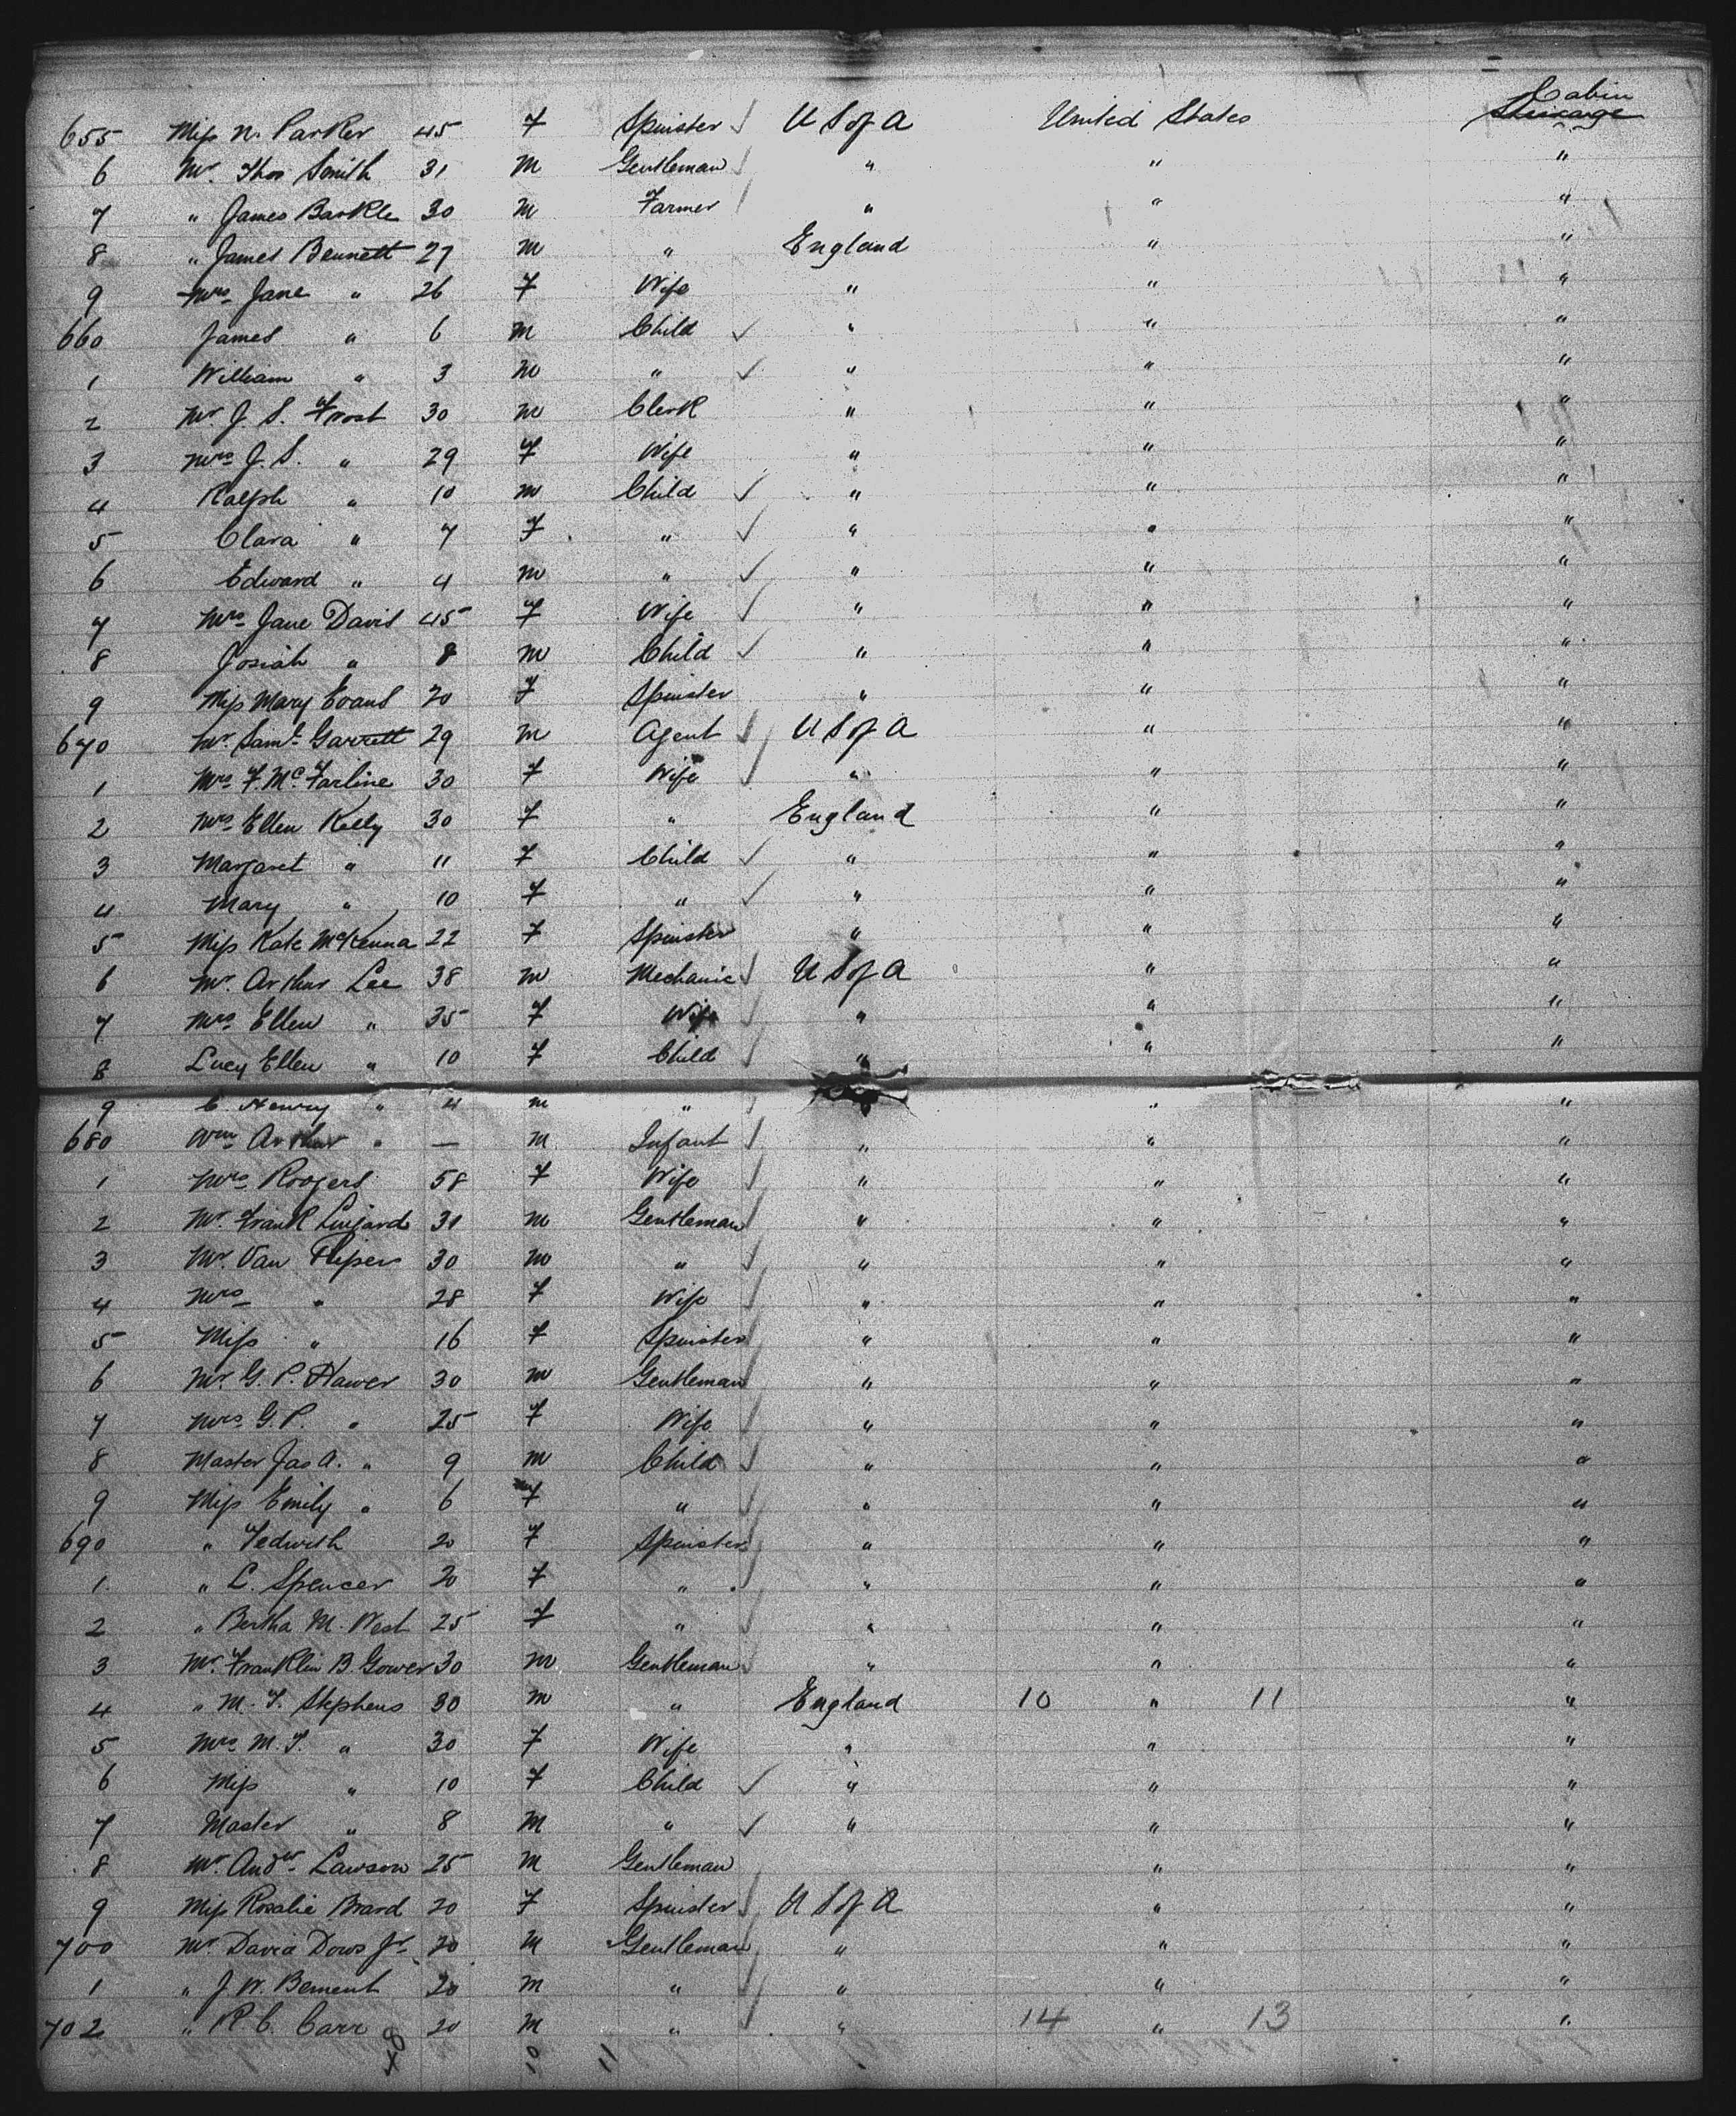 Cabin
655 Miss N. Parker 45 F Spinster U S of A United States Steerage
6 Mr. Thos Smith 31 M Gentleman " " "
7 " James Barkle 30 M Farmer " " "
8 " James Bennett 27 M " England " "
9 Mrs Jane " 26 F Wife " " "
660 James " 6 M Child " " "
1 William " 3 M " " " "
2 Mr. J. S. Frost 30 M Clerk " " "
3 Mrs J. S. " 29 F Wife " " "
4 Ralph " 10 M Child " " "
5 Clara " 7 F " " " "
6 Edward " 4 M " " " "
7 Mrs Jane Davis 45 F Wife " " "
8 Josiah " 8 M Child " " "
9 Miss Mary Evans 20 F Spinster " " "
670 Mr. Saml Garrett 29 M Agent U S of A " "
1 Mrs F. McFarline 30 F Wife " " "
2 Mrs Ellen Kelly 30 F " England " "
3 Margaret " 11 F Child " " "
4 Mary " 10 F " " " "
5 Miss Kate McKenna 22 F Spinster " " "
6 Mr. Arthur Lee 38 M Mechanic U S of A " "
7 Mrs Ellen " 35 F Wife " " "
8 Lucy Ellen " 10 F Child " " "
9 C. Henry " 4 M " " "
680 Wm Arthur " — M Infant " " "
1 Mrs Rogers 58 F Wife " " "
2 Mr. Frank Lingard 31 M Gentleman " " "
3 Mr. Van Riper 30 M " " " "
4 Mrs " 28 F Wife " " "
5 Miss " 16 F Spinster " " "
6 Mr. G. P. Hawer 30 M Gentleman " " "
7 Mrs G. P. " 25 F Wife " " "
8 Master Jas A. " 9 M Child " " "
9 Miss Emily " 6 F " " " "
690 " Tedwith 20 F Spinster " " "
1 " L. Spencer 20 F " " " "
2 " Bertha M. West 25 F " " " "
3 Mr. Franklin B. Gower 30 M Gentleman " " "
4 " M. T. Stephens 30 M " England 10 " 11 "
5 Mrs M. T. " 30 F Wife " " "
6 Miss " 10 F Child " " "
7 Master " 8 M " " " "
8 Mr. Andw Lawson 25 M Gentleman " "
9 Miss Rosalie Brard 20 F Spinster U S of A " "
700 Mr David Dows Jr. 20 M Gentleman " " "
1 " J W. Bement 20 M " " " "
702 " R. C. Carr 20 M " " 14 " 13 "
48 10 11